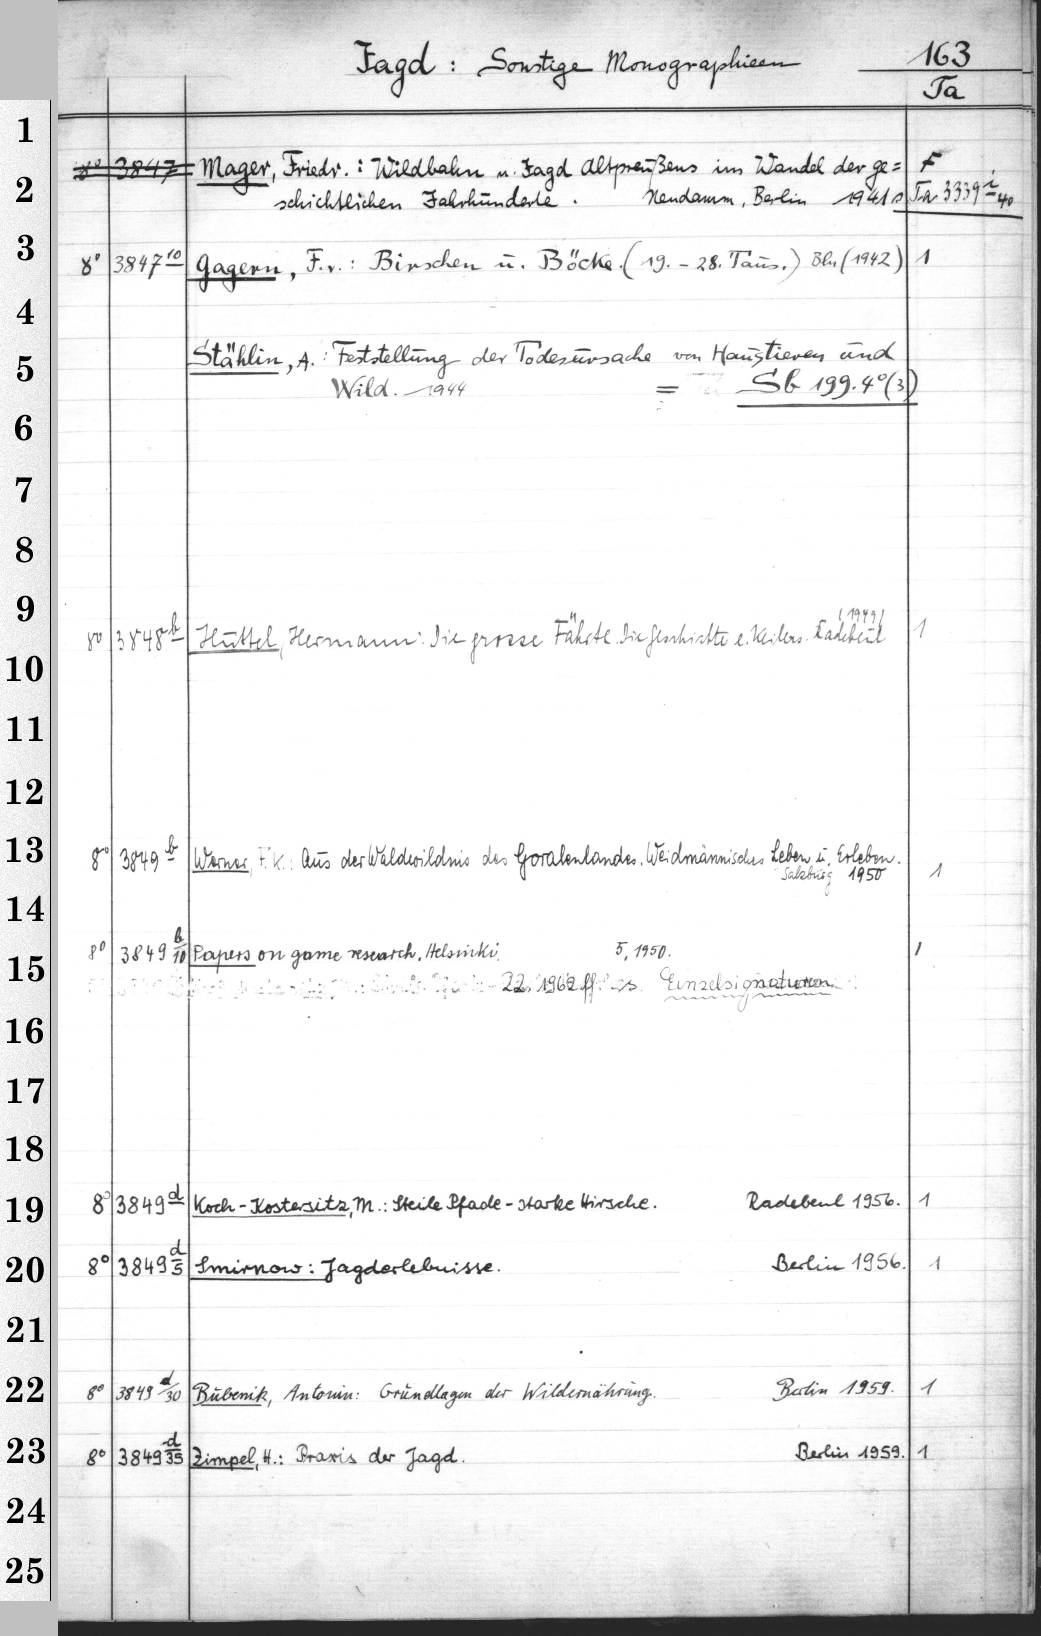 163
Jagd : Sonstige Monographieen
Ta
1
8° 3847 Mager, Friedr. : Wildbahn u. Jagd Altpreußens im Wandel der ge= F
2
schichtlichen Jahrhunderte . Neudamm, Berlin 1941 s Ta 3339 i 40
3
8° 3847 10 Gagern, F. v. : Birschen u. Böcke. (19. - 28. Taus.) Bln. (1942) 1
4
Stählin, A. : Feststellung der Todesursache von Haustieren und
5
Wild. - 1944 = Sb 199. 4° (3)
6
7
8
9
(1949)
8° 3848 b Hüttel, Hermann: Die grosse Fährte. Die Geschichte e. Keilers. Radebeul 1
10
11
12
13
8° 3849 b Werner, F. K.: Aus der Waldwildnis des Goralenlandes. Weidmännisches Leben u. Erleben.
Salzburg 1950 1
14
8° 3849 b/10 Papers on game research. Helsinki. 5, 1950. 1
15
22. 1962 ff s. Einzelsignaturen
16
17
18
19
8° 3849 d Koch-Kostersitz, M.: Steile Pfade - starke Hirsche. Radebeul 1956. 1
20
8° 3849 d/5 Smirnow : Jagderlebnisse. Berlin 1956. 1
21
22
8° 3849 d/30 Bubenik, Antonin: Grundlagen der Wildernährung. Berlin 1959. 1
23
8° 3849 d/35 Zimpel, H.: Praxis der Jagd. Berlin 1959. 1
24
25